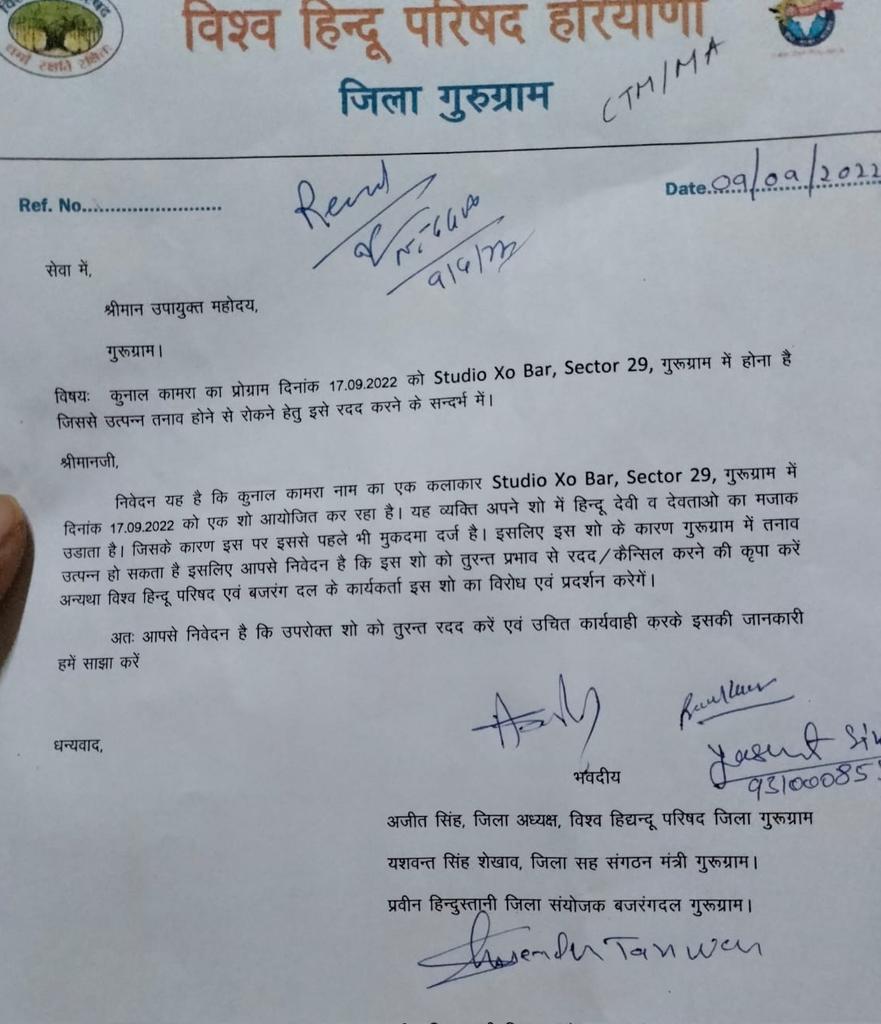 विश्व हिन्दू परिषद हरियाणा
जिला गुरुग्राम
CTM/MA
Ref. No.............................
Date..09/09/2022
सेवा में,
श्रीमान उपायुक्त महोदय,
गुरूग्राम।
विषयः कुनाल कामरा का प्रोग्राम दिनांक 17.09.2022 को Studio Xo Bar, Sector 29, गुरूग्राम में होना है
जिससे उत्पन्न तनाव होने से रोकने हेतु इसे रदद करने के सन्दर्भ में।
श्रीमानजी,
निवेदन यह है कि कुनाल कामरा नाम का एक कलाकार Studio Xo Bar, Sector 29, गुरूग्राम में
दिनांक 17.09.2022 को एक शो आयोजित कर रहा है। यह व्यक्ति अपने शो में हिन्दू देवी व देवताओ का मजाक
उडाता है। जिसके कारण इस पर इससे पहले भी मुकदमा दर्ज है। इसलिए इस शो के कारण गुरूग्राम में तनाव
उत्पन्न हो सकता है इसलिए आपसे निवेदन है कि इस शो को तुरन्त प्रभाव से रदद/कैन्सिल करने की कृपा करें
अन्यथा विश्व हिन्दू परिषद एवं बजरंग दल के कार्यकर्ता इस शो का विरोध एवं प्रदर्शन करेगें।
अतः आपसे निवेदन है कि उपरोक्त शो को तुरन्त रदद करें एवं उचित कार्यवाही करके इसकी जानकारी
हमें साझा करें
धन्यवाद,
भवदीय
93100085
अजीत सिंह, जिला अध्यक्ष, विश्व हिद्यन्दू परिषद जिला गुरूग्राम
यशवन्त सिंह शेखाव, जिला सह संगठन मंत्री गुरूग्राम।
प्रवीन हिन्दुस्तानी जिला संयोजक बजरंगदल गुरूग्राम।
Tanwar